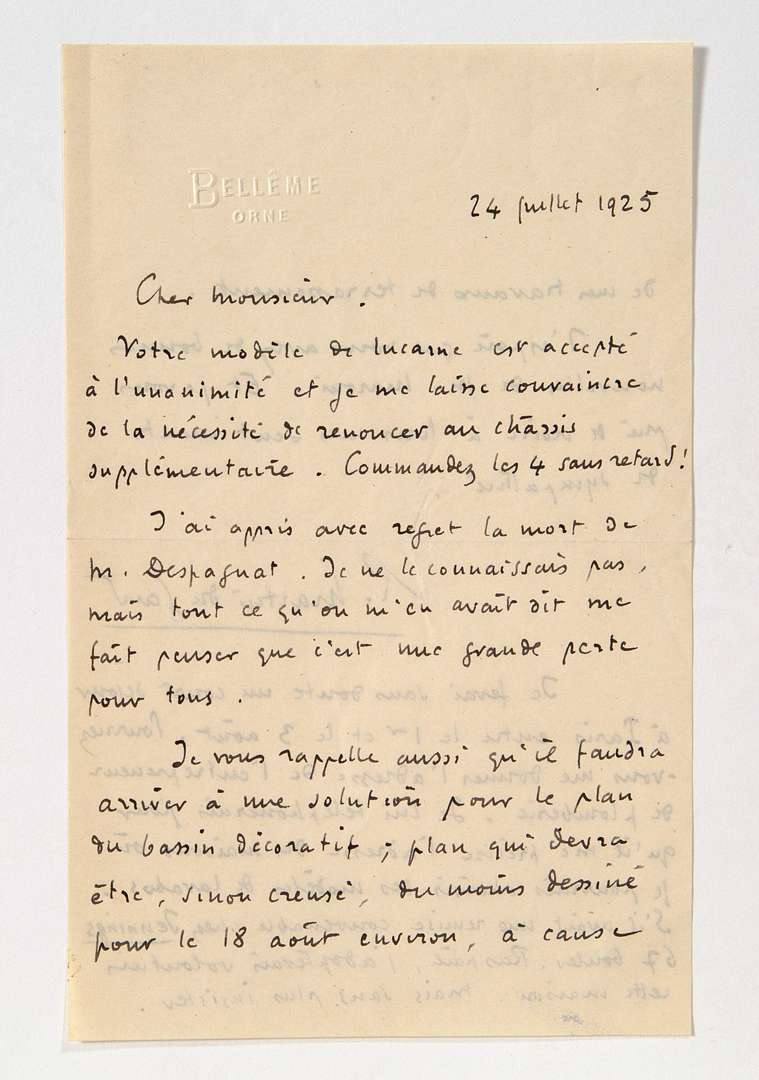 BELLÊME
ORNE
24 juillet 1925
Cher monsieur.
Votre modèle de lucarne est accepté
à l'unanimité et je me laisse convaincre
de la nécessité de renoncer au châssis
supplémentaire. Commandez les 4 sans retard!
J'ai appris avec regret la mort de
M. Despagnat. Je ne le connaissais pas,
mais tout ce qu'on m'en avait dit me
fait penser que c'est une grande perte
pour tous.
Je vous rappelle aussi qu'il faudra
arriver à une solution pour le plan
du bassin décoratif; plan qui devra
être, sinon creusé, du moins dessiné
pour le 18 août environ, à cause